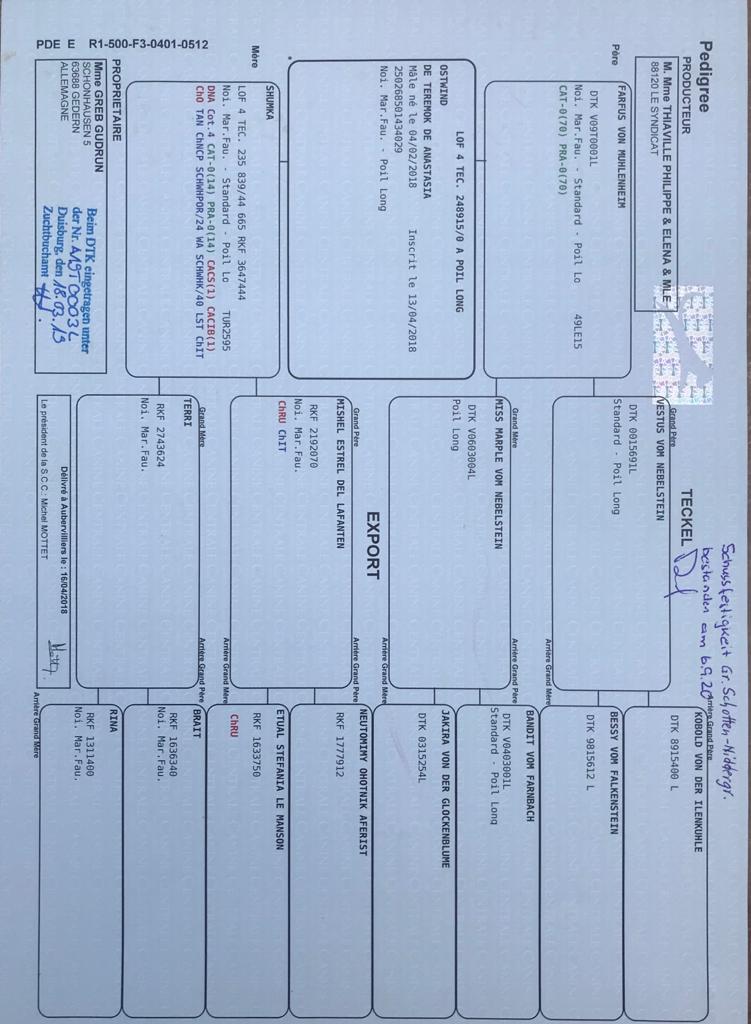 Pedigree
PRODUCTEUR
M. Mme THIAVILLE PHILIPPE & ELENA & MLE
88120 LE SYNDICAT
TECKEL
Schussfestigkeit Gr. Schotten-Niddergr.
bestanden am 6.9.20
Père
FARFUS VON MUHLENHEIM
DTK V09T0001L
Noi. Mar.Fau. - Standard - Poil Lo 49LE15
CAT-0(70) PRA-0(70)
LOF 4 TEC. 248915/0 A POIL LONG
OSTWIND
DE TEREMOK DE ANASTASIA
Mâle né le 04/02/2018 Inscrit le 13/04/2018
250268501434029
Noi. Mar.Fau. - Poil Long
Mère
SHUMKA
LOF 4 TEC. 235 839/44 665 RKF 3647444
Noi. Mar.Fau. - Standard - Poil Lo TUR2595
DNA Cot.4 CAT-0(14) PRA-0(14) CACS(1) CACIB(1)
ChO TAN ChNCP SCHWHPOR/24 WA SCHWHK/40 LST ChIT
PROPRIETAIRE
Mme GREB GUDRUN
SCHONHAUSEN 5
63688 GEDERN
ALLEMAGNE
Beim DTK eingetragen unter
der Nr. A19T0003L
Duisburg, den 18.03.19
Zuchtbuchamt
PDE E R1-500-F3-0401-0512
Grand Père
VESTUS VOM NEBELSTEIN
DTK 0015691L
Standard - Poil Long
Grand Mère
MISS MARPLE VOM NEBELSTEIN
DTK V0603004L
Poil Long
EXPORT
Grand Père
MISHEL ESTREL DEL LAFANTEN
RKF 2192070
Noi. Mar.Fau.
ChRU ChIT
Grand Mère
TERRI
RKF 2743624
Noi. Mar.Fau.
Délivré à Aubervilliers le : 16/04/2018
Le président de la S.C.C : Michel MOTTET
Arrière Grand Père
KOBOLD VON DER ILENKUHLE
DTK 8915400 L
Arrière Grand Mère
BESSY VOM FALKENSTEIN
DTK 9815612 L
Arrière Grand Père
BANDIT VOM FARNBACH
DTK V0403001L
Standard - Poil Long
Arrière Grand Mère
JAKIRA VON DER GLOCKENBLUME
DTK 0315254L
Arrière Grand Père
NEUTOMIMY OHOTNIK AFERIST
RKF 1777912
Arrière Grand Mère
ETUAL STEFANIA LE MANSON
RKF 1633750
ChRU
Arrière Grand Père
BRAIT
RKF 1636340
Noi. Mar.Fau.
Arrière Grand Mère
RINA
RKF 1311400
Noi. Mar.Fau.